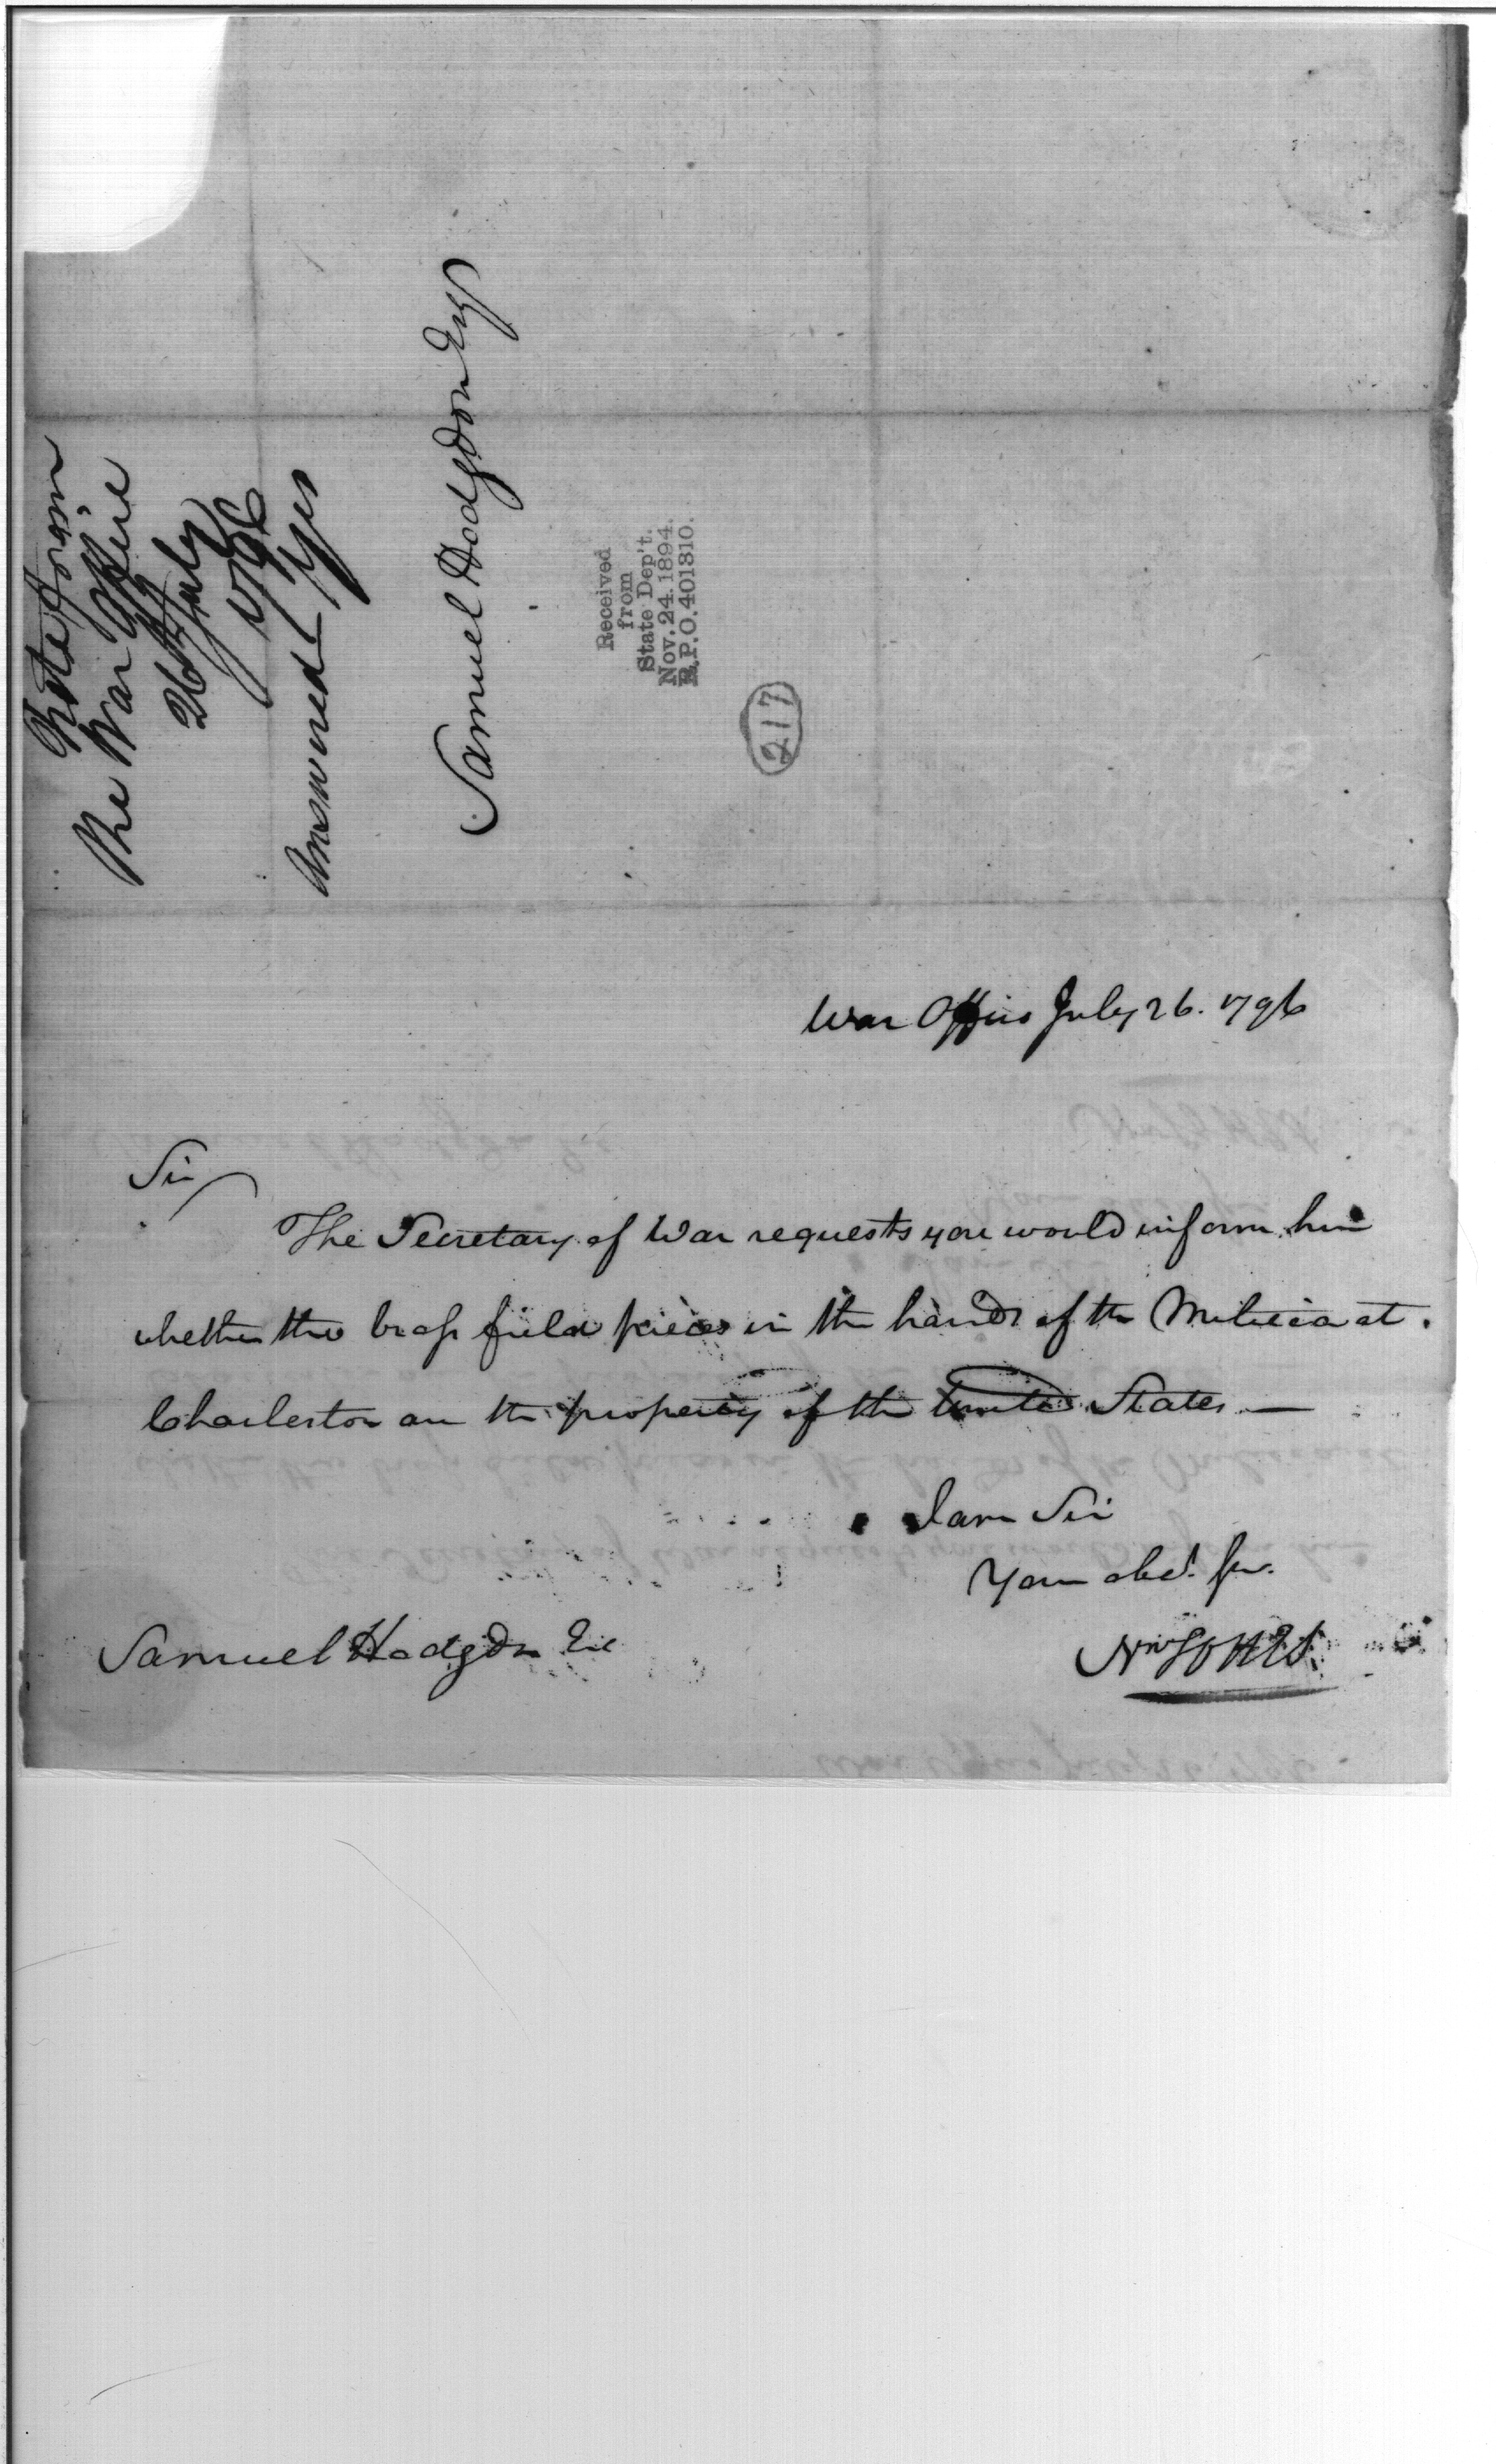 Note from
The War Office
26th July
1796
Answered Yes
Samuel Hodgdon Esqr
Received
from
State Dep't.
Nov. 24. 1894.
R.P.O. 401310.
217
War Office July 26. 1796
Sir
The Secretary of War requests you would inform him
whether the brass field pieces in the hands of the Militia at
Charleston are the property of the United States —
I am Sir
Your obed. ser.
Samuel Hodgdon Esq
Nw Jones